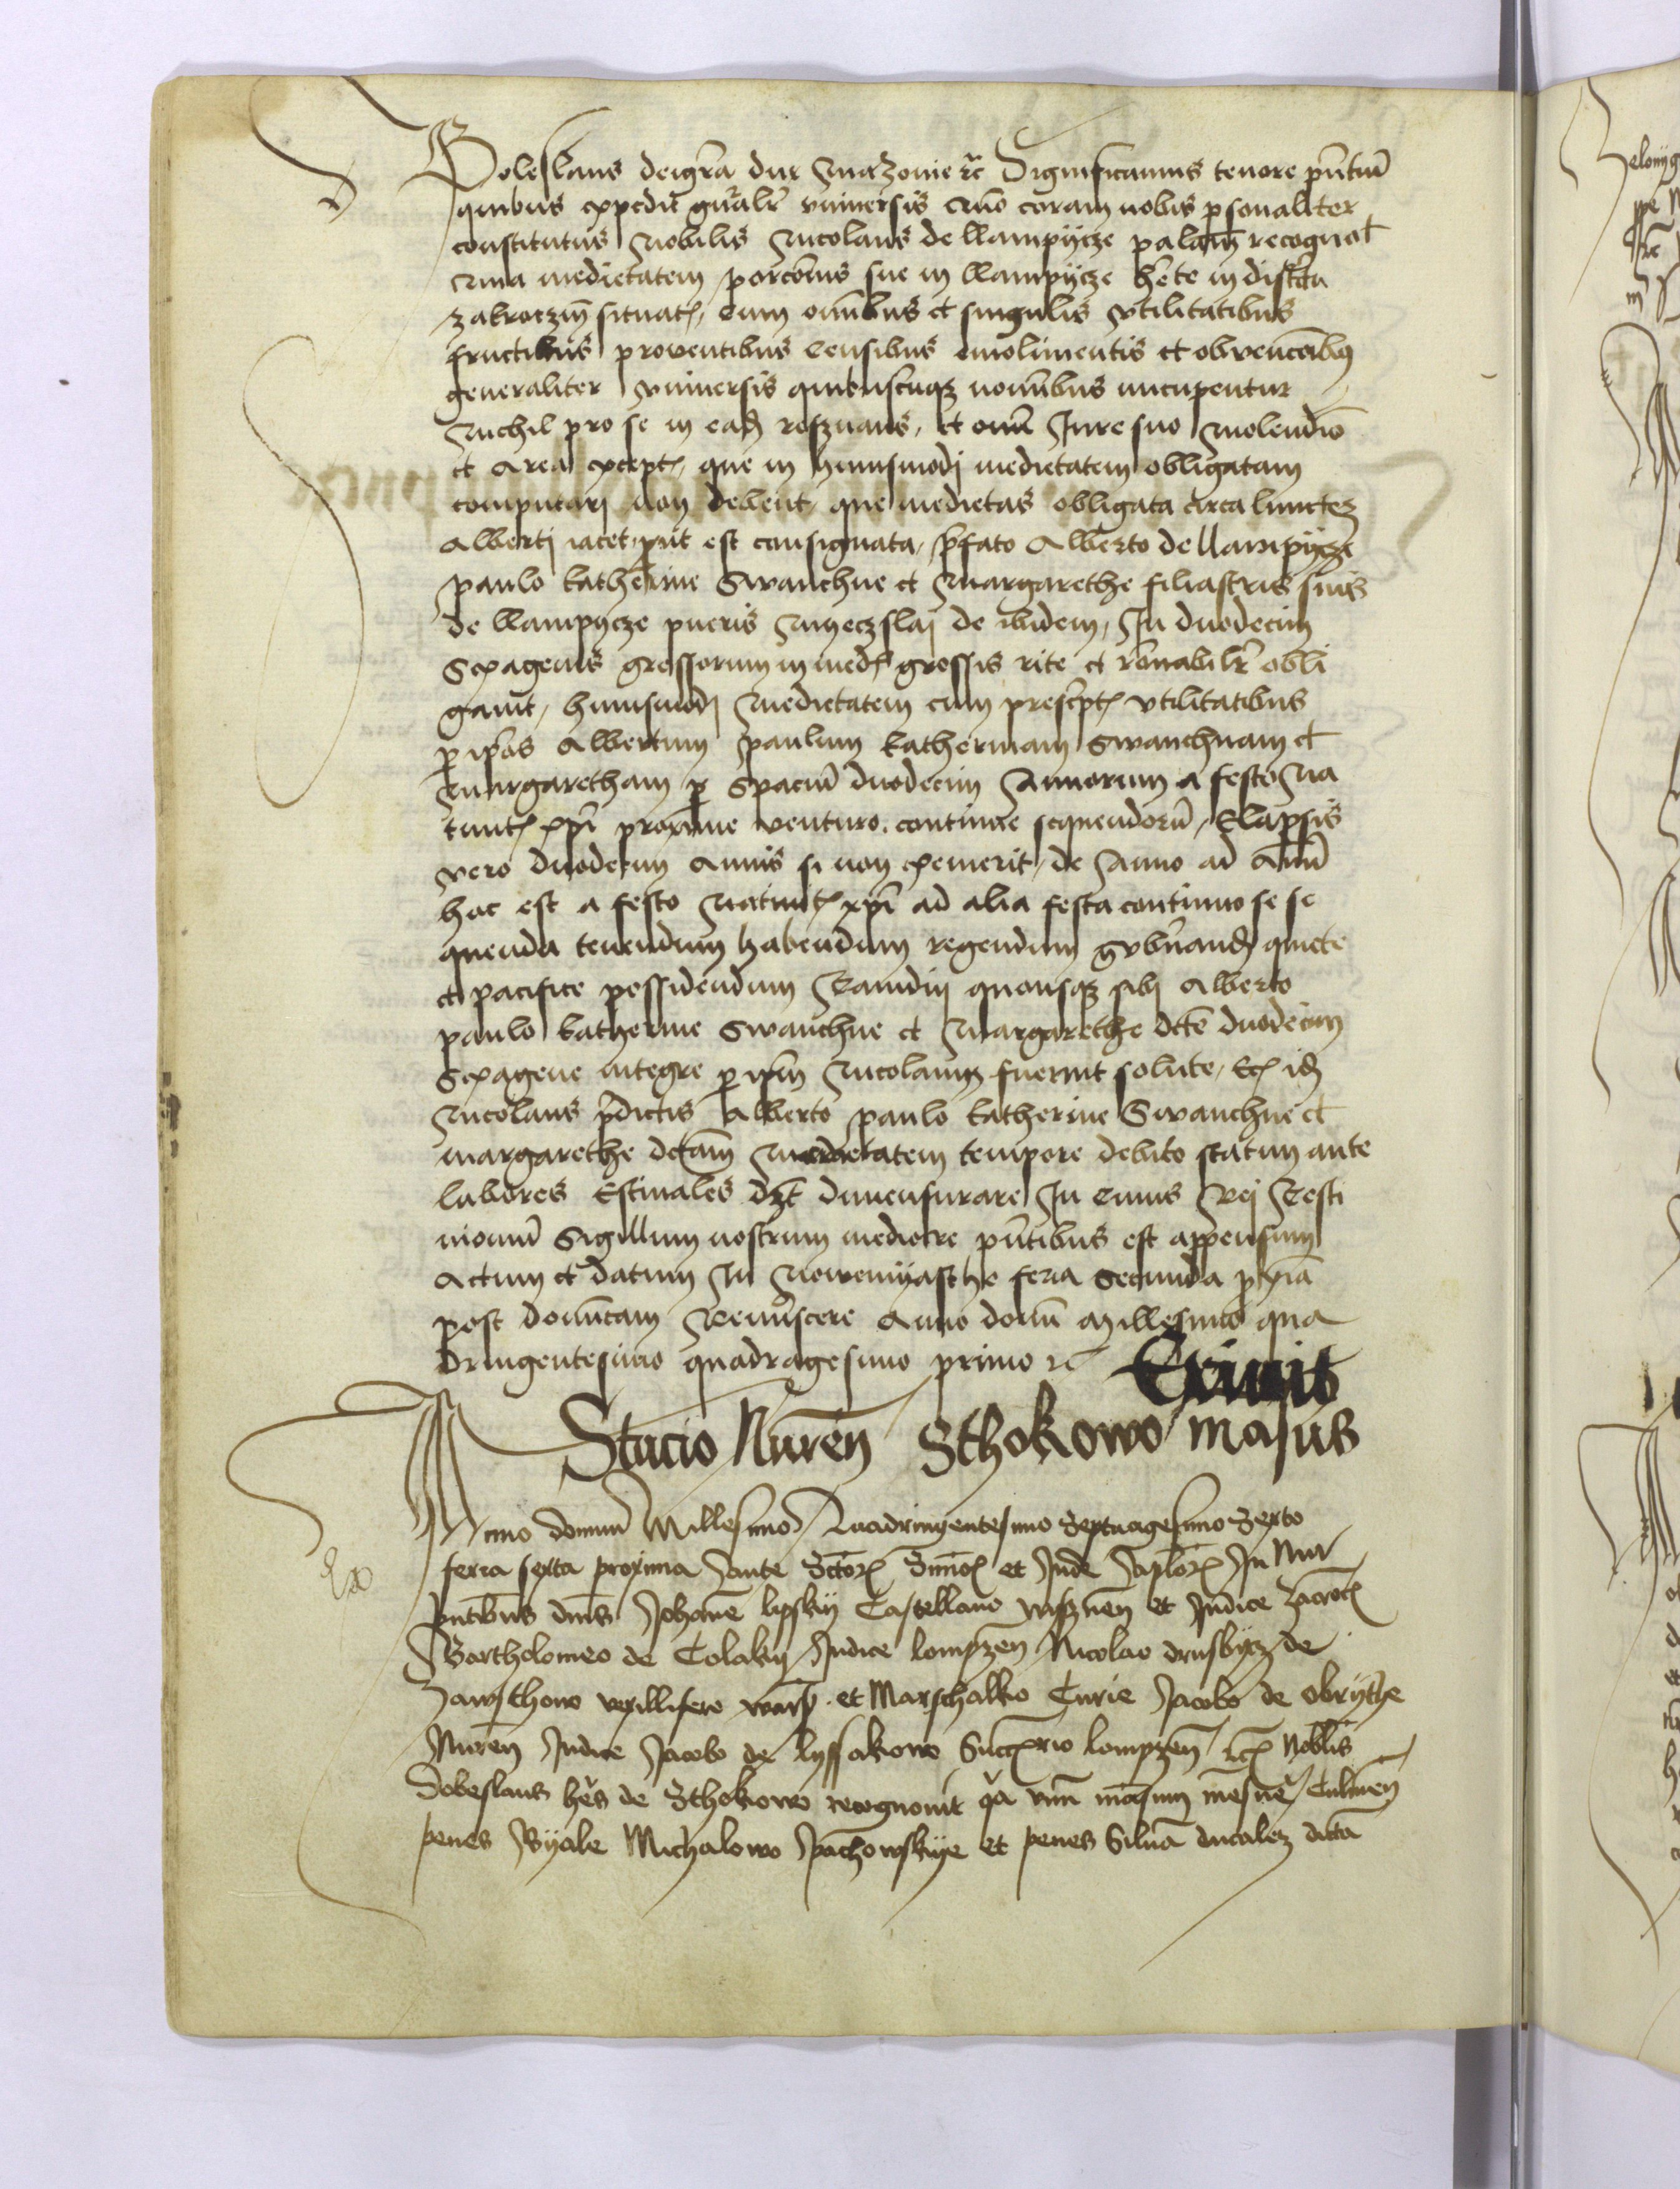 Boleslaus dei gra dux Mazouie etc Significamus tenore pntium
quibus expedit gnralr vniuersis Quo coram nobis psonaliter
constitutus Nobilis Nicolaus de llampijcze palam recognot
Quia medietatem porcois sue in llampijcze hete in districtu
zakroczim situat, cum omibus et singulis vtilitatibus
fructibus prouentibus Censibus emolimentis et obuencoibus
generaliter vniuersis quibuscuqz nomibus nuncupentur
Nichil pro se in ead reszuans, et omi Jure suo Molendio
et Area except, que in huiusmodi medietatem obligatam
computari non debent, que medietas obligata circa
Alberti iacet, put est consignata, pfato Alberto de llampijcze
paulo katherine Swanchne et Margarethe filiastris suis
de llampijcze pueris Myeczslai de ibidem, In duodecim
Sexagenis grossorum in med grossis rite et ronabilr obli
gauit, huiusmodi Medietatem cum prescpt vtilitatibus
p ipos Albertum paulum katherinam Swanchnam et
Margaretham p spacium duodecim Annorum a festo Na
tiuit xpi proxime venturo. continue sequendoru, Elapsis
vero duodecim Annis si non exemerit, de Anno ad Annu
hoc est a festo Natiuit xpi ad alia festa continuo se se
quenda tenendum habendum regendum gubnand quiete
et pacifice possidendum Tamdiu quousqz sibi Alberto
paulo katherine Swanchne et Margarethe dcte duodecim
Sexagene integre p ipm Nicolaum fuerint solute, id
Nicolaus pdictis Alberto paulo katherine Swanchne et
margarethe dctam Medietatem tempore debito statim ante
labores Estiuales dimensurare In Cuius Rei Testi
monium Sigillum nostrum mediocre pntibus est appensum
Actum et datum In Nowemyasthe feria secunda pxia
post domicam Reminiscere Anno domi Millesimo qua
dringentesimo quadragesimo primo etc Eximit
Stacio Nuren Sthokowo maius
Anno domini Millesimo Quadringentesimo Septuagesimo Sexto
feria sexta proxima Ante Sctor Simois et Jude Aplor In Nur
pntibus dnis Johanne lipskij Castellano wiszney et Judice zacrot
Bartholomeo de Colakij Judice lompzen Nicolao drusbycz de
Zawsthowo vexillifero warsch. et Marschalko Curie Jacobo de Obrythe
Nuren Judice Jacobo de lyssakowo lompzen etc Noblis
Dobeslaus hes de Sthokowo recognouit qa vnu mansum Culmen
penes Byale Michalowo Pachowskye et penes Siluam ducalez dicta